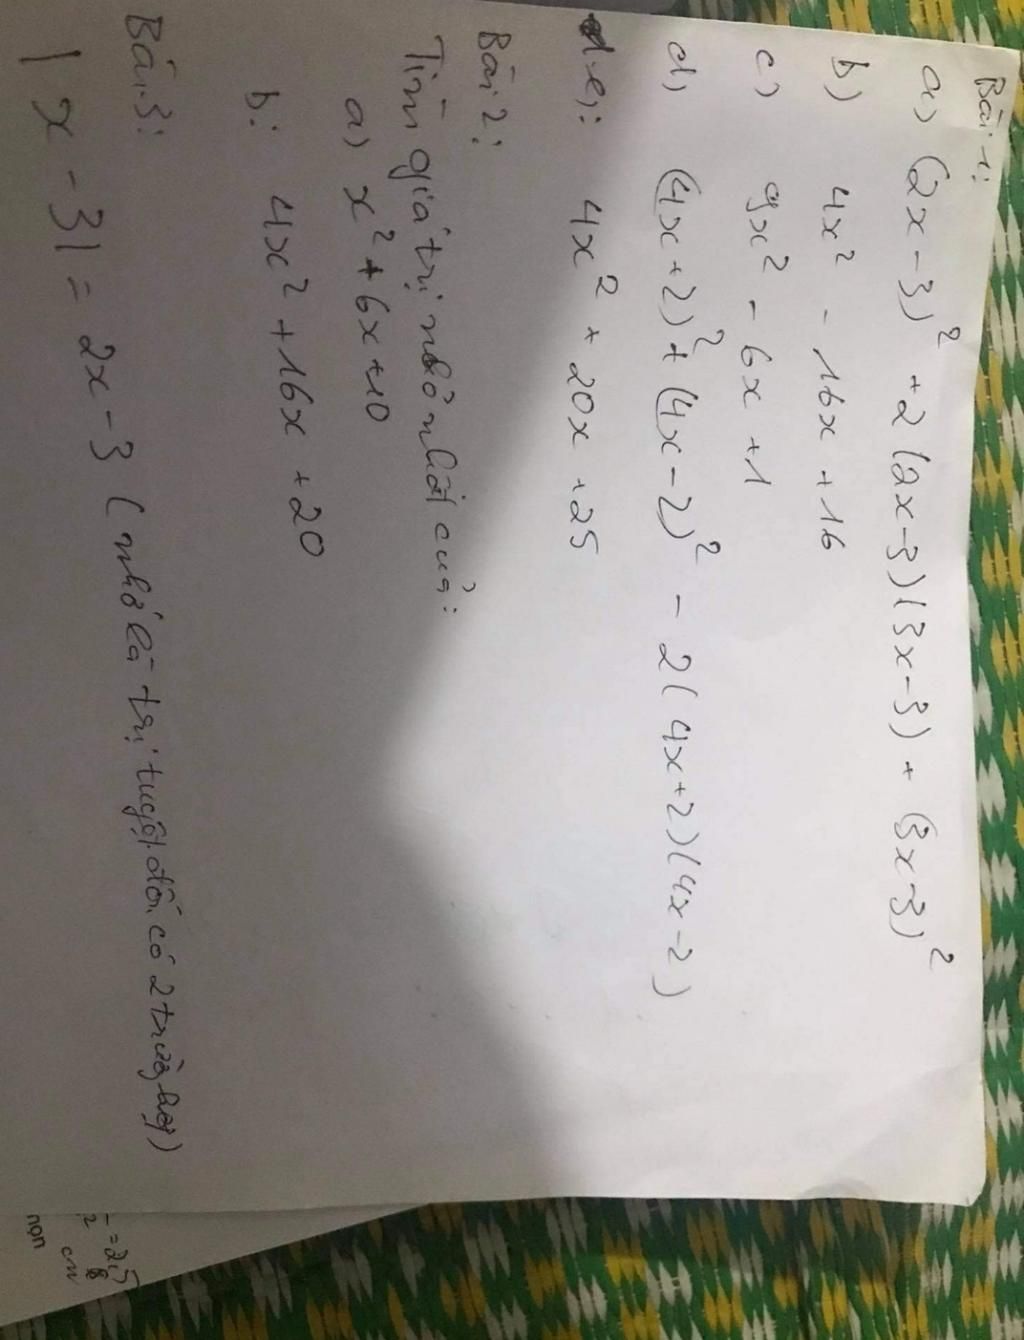 Bài 1:
a) (2x-3)² + 2(2x-3)(3x-3) + (3x-3)²
b) 4x² - 16x + 16
c) 9x² - 6x + 1
d) (4x+2)² + (4x-2)² - 2(4x+2)(4x-2)
e): 4x² + 20x + 25
Bài 2:
Tìm giá trị nhỏ nhất của:
a) x² + 6x + 10
b: 4x² + 16x + 20
Bài 3:
|x - 3| = 2x - 3 (nhớ là trị tuyệt đối có 2 trường hợp)
= 25
cm
nọn